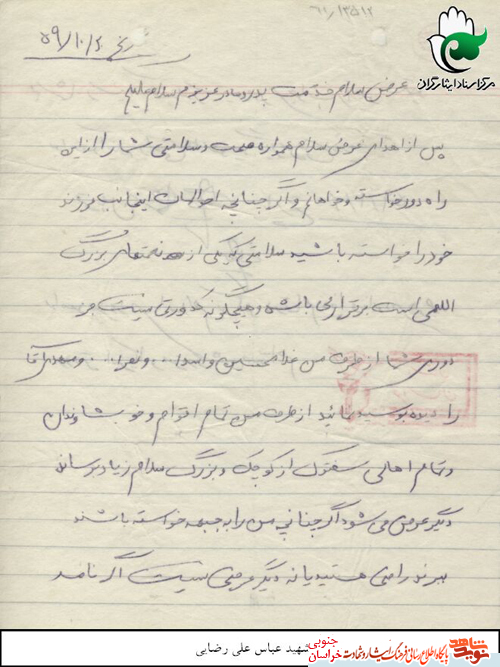 ۶۱/۱۳۵۱۲
مرکز اسناد ایثارگران
تاریخ ۵۹/۱۰/۴
عرض سلام خدمت پدر و مادر عزیزم سلام علیکم
پس از اهدای عرض سلام همواره صحت و سلامتی شما را از این
راه دور خواسته و خواهانم و اگر چنانچه احوالات اینجانب فرزند
خود را خواسته باشید سلامتی که یکی از نعمتهای بزرگ
اللهی است برقرار می باشد و هیچگونه کدورتی نیست جز
دوری شما از طرف من غلامحسین و اسدا... و نصرا...
را دیده بوسید نمائید از طرف من تمام اقوام و خوشاوندان
و تمام اهالی از کوچک و بزرگ سلام زیاد برسانید
دیگر عرض می شود اگر چنانچه من را به جبهه خواسته باشند
ببرند راضی هستید یا نه دیگر عرضی نیست اگر نامه
شهید عباس علی رضایی
خراسان جنوبی
نوید شاهد
پایگاه اطلاع رسانی فرهنگ ایثار و شهادت